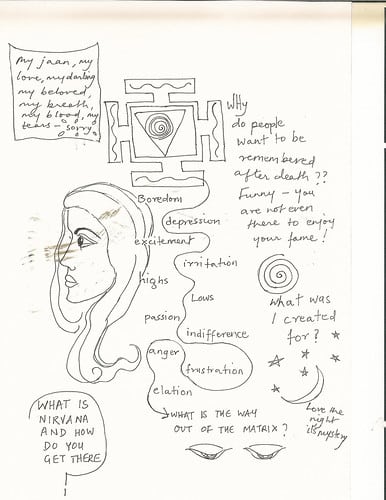 my jaan, my
love, my darling
my beloved,
my breath,
my blood, my
tears - sorry
Why
do people
want to be
remembered
after death ??
Funny - you
are not even
there to enjoy
your fame!
Boredom
depression
excitement
irritation
highs
Lows
passion
indifference
anger
frustration
elation
WHAT IS THE WAY
OUT OF THE MATRIX?
what was
I created
for?
Love the
night
its mystery
WHAT IS
NIRVANA
AND HOW
DO YOU
GET THERE